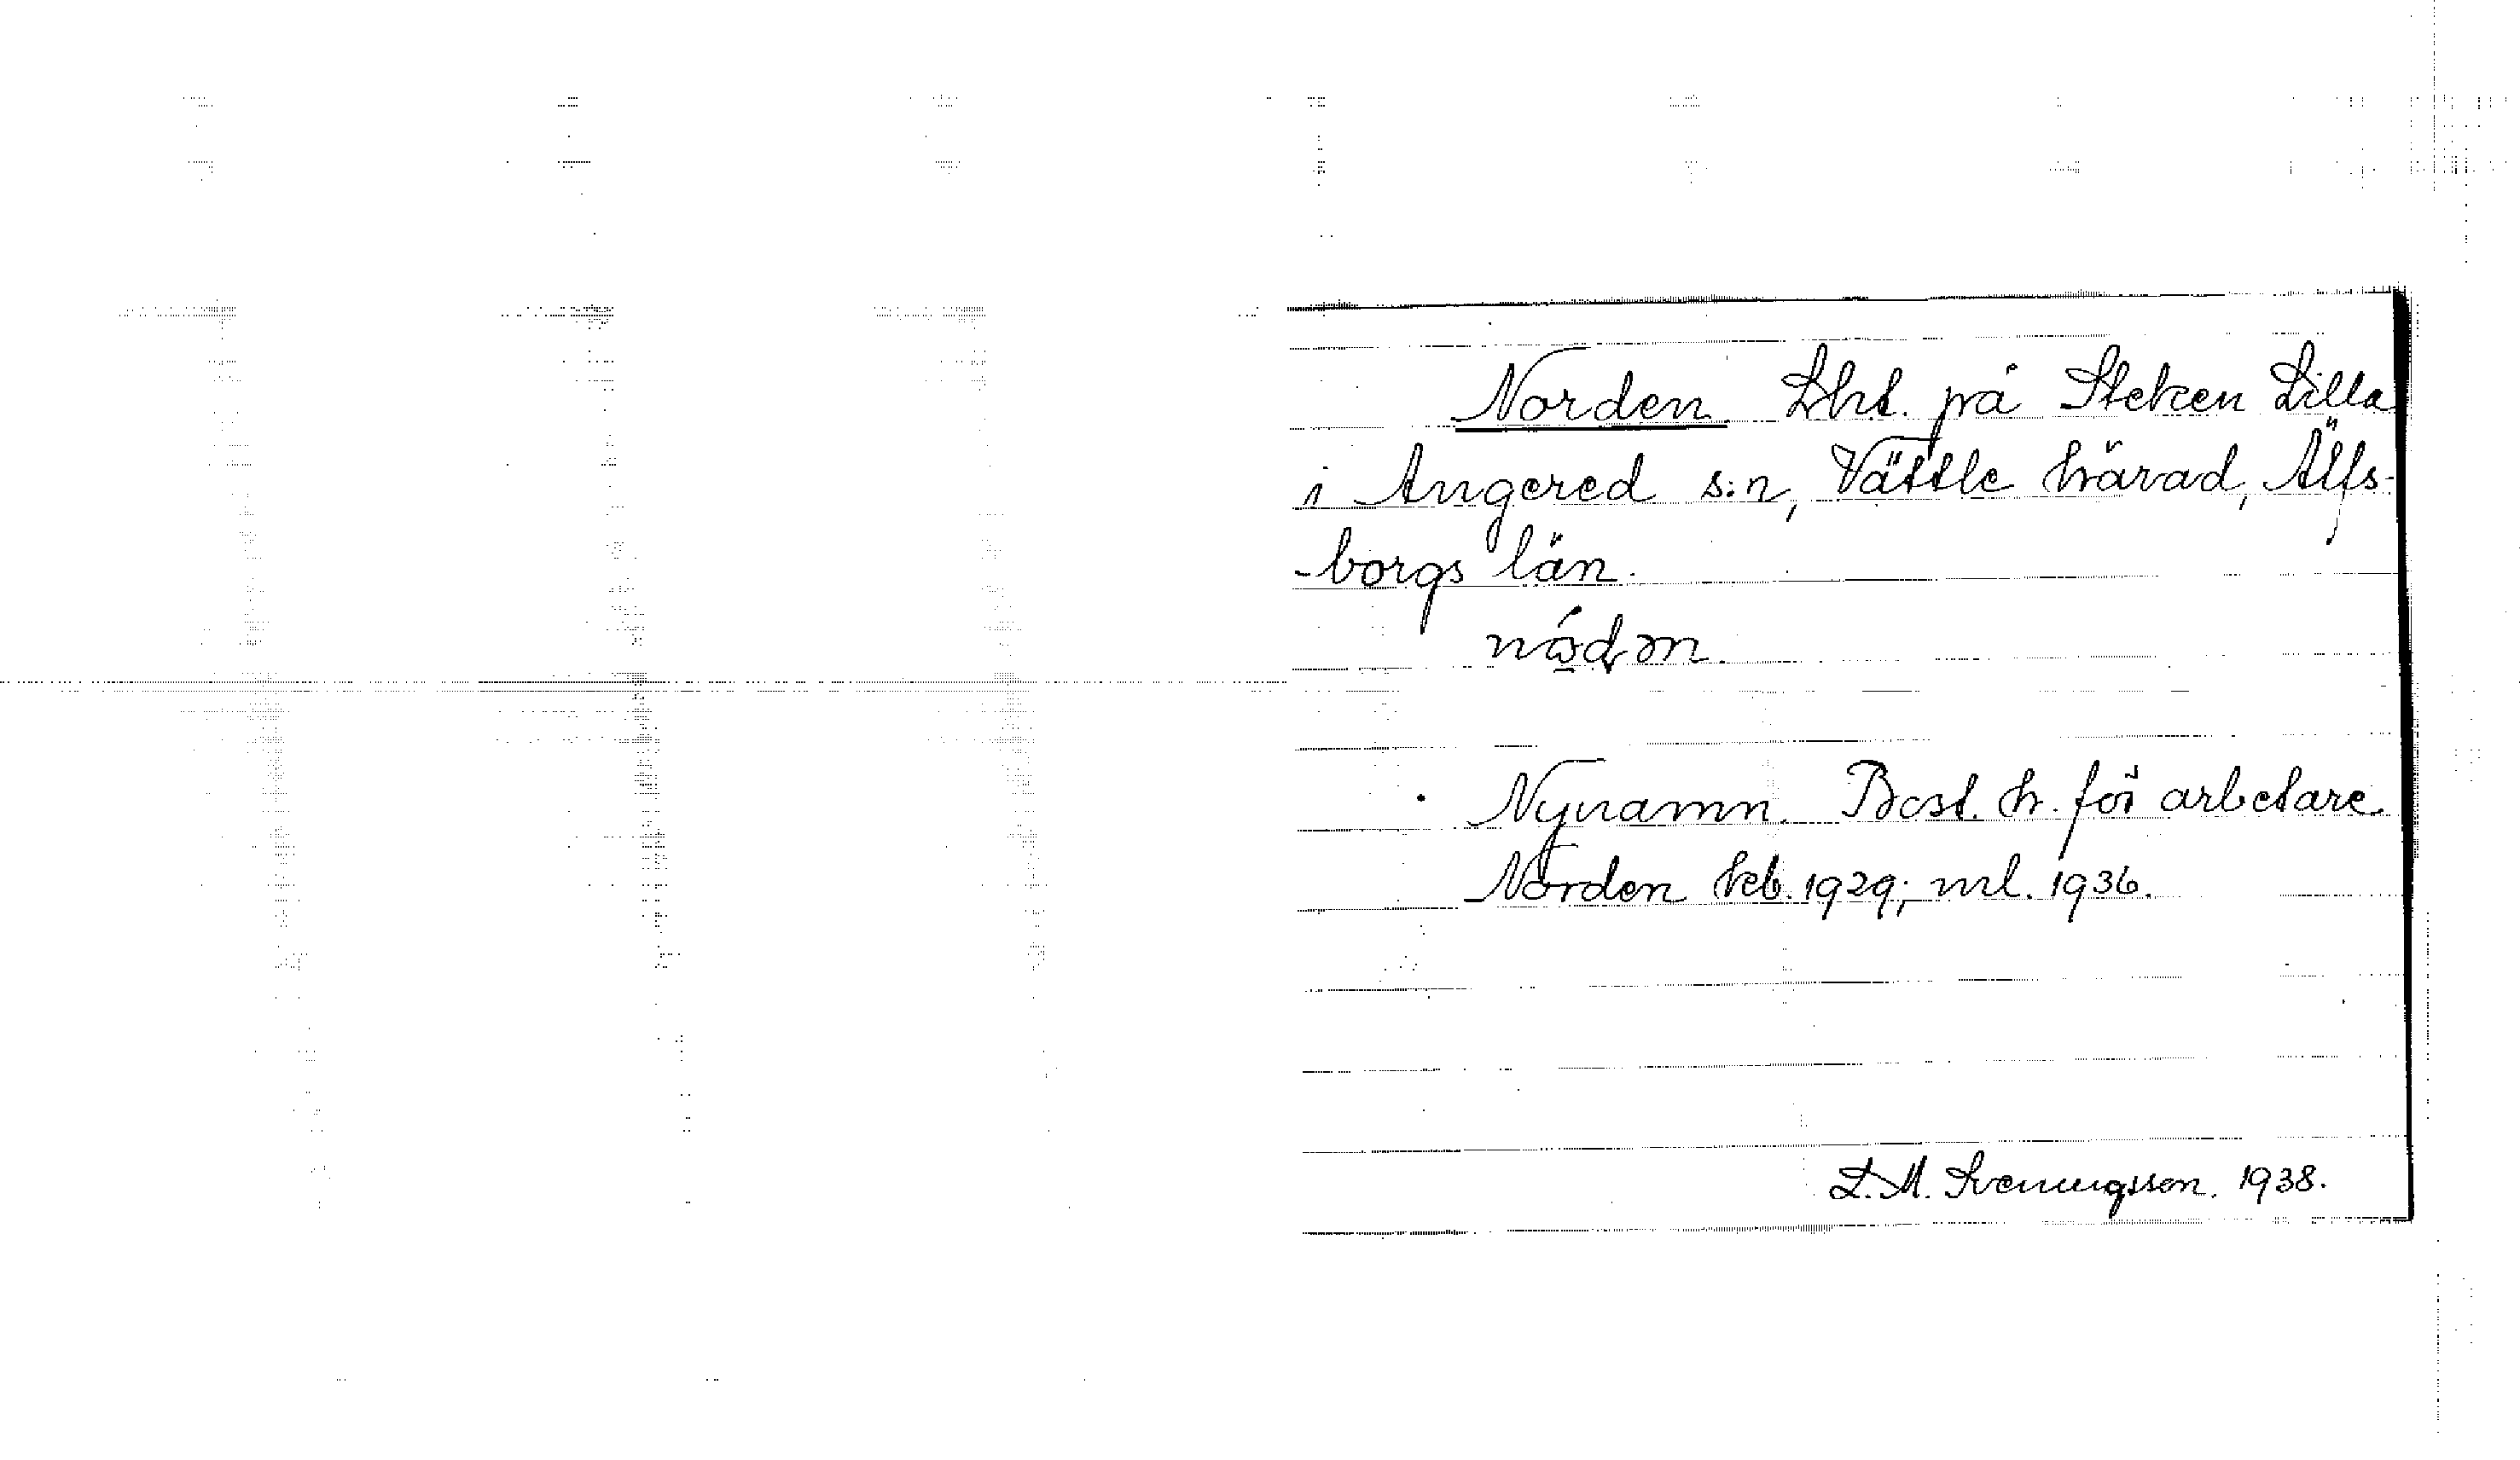 Norden. Lht. på Steken Lilla
i Angered s:n, Vättle härad, Älfs-
-borgs län.
Nynamn. Bost. h. för arbetare.
Norden kb. 1929; ml. 1936.
L. M. Svenungsson. 1938.